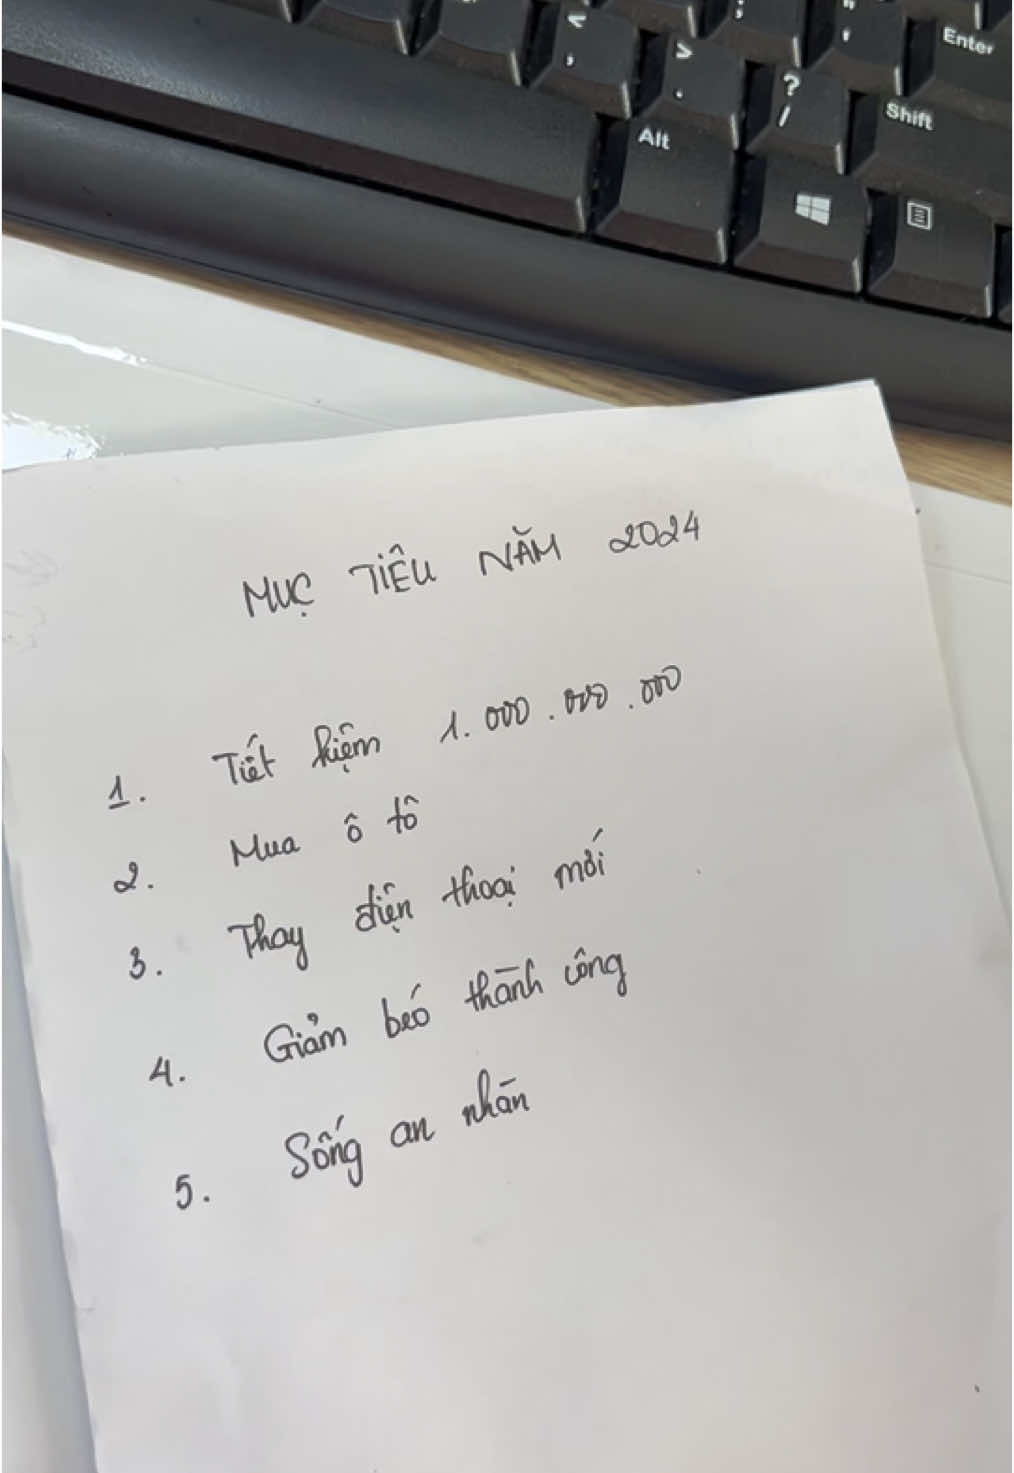 < ,
> .
? /
;
" '
Enter
Alt
Shift
MỤC TIÊU NĂM 2024
1. Tiết kiệm 1.000.000.000
2. Mua ô tô
3. Thay điện thoại mới
4. Giảm béo thành công
5. Sống an nhàn